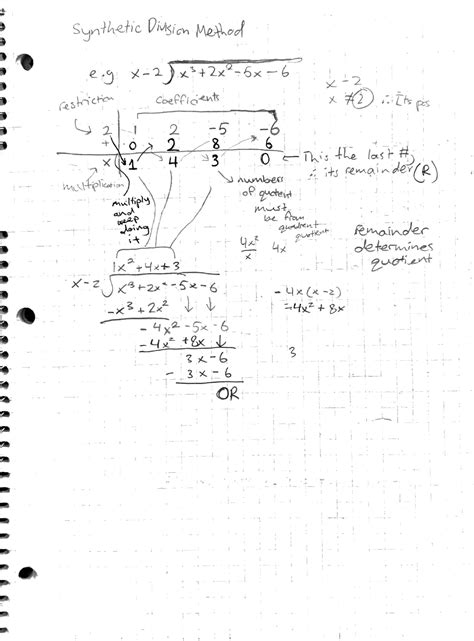 Synthetic Division Method
e.g x-2 ) x³+2x²-5x-6
x-2
x ≠ 2 ∴ Its pos
restriction
coefficients
2 | 1 2 -5 -6
+ 0 2 8 6
x 1 4 3 0
This the last #,
∴ its remainder (R)
multiplication
multiply
and
keep
doing
it
numbers
of quotient
must
be from
quotient
4x²/x 4x
remainder
determines
quotient
1x²+4x+3
x-2 ) x³+2x²-5x-6
-x³+2x² ↓ ↓
-4x²-5x-6
-4x²+8x ↓
3x-6
- 3x-6
0R
-4x(x-2)
=4x²+8x
3